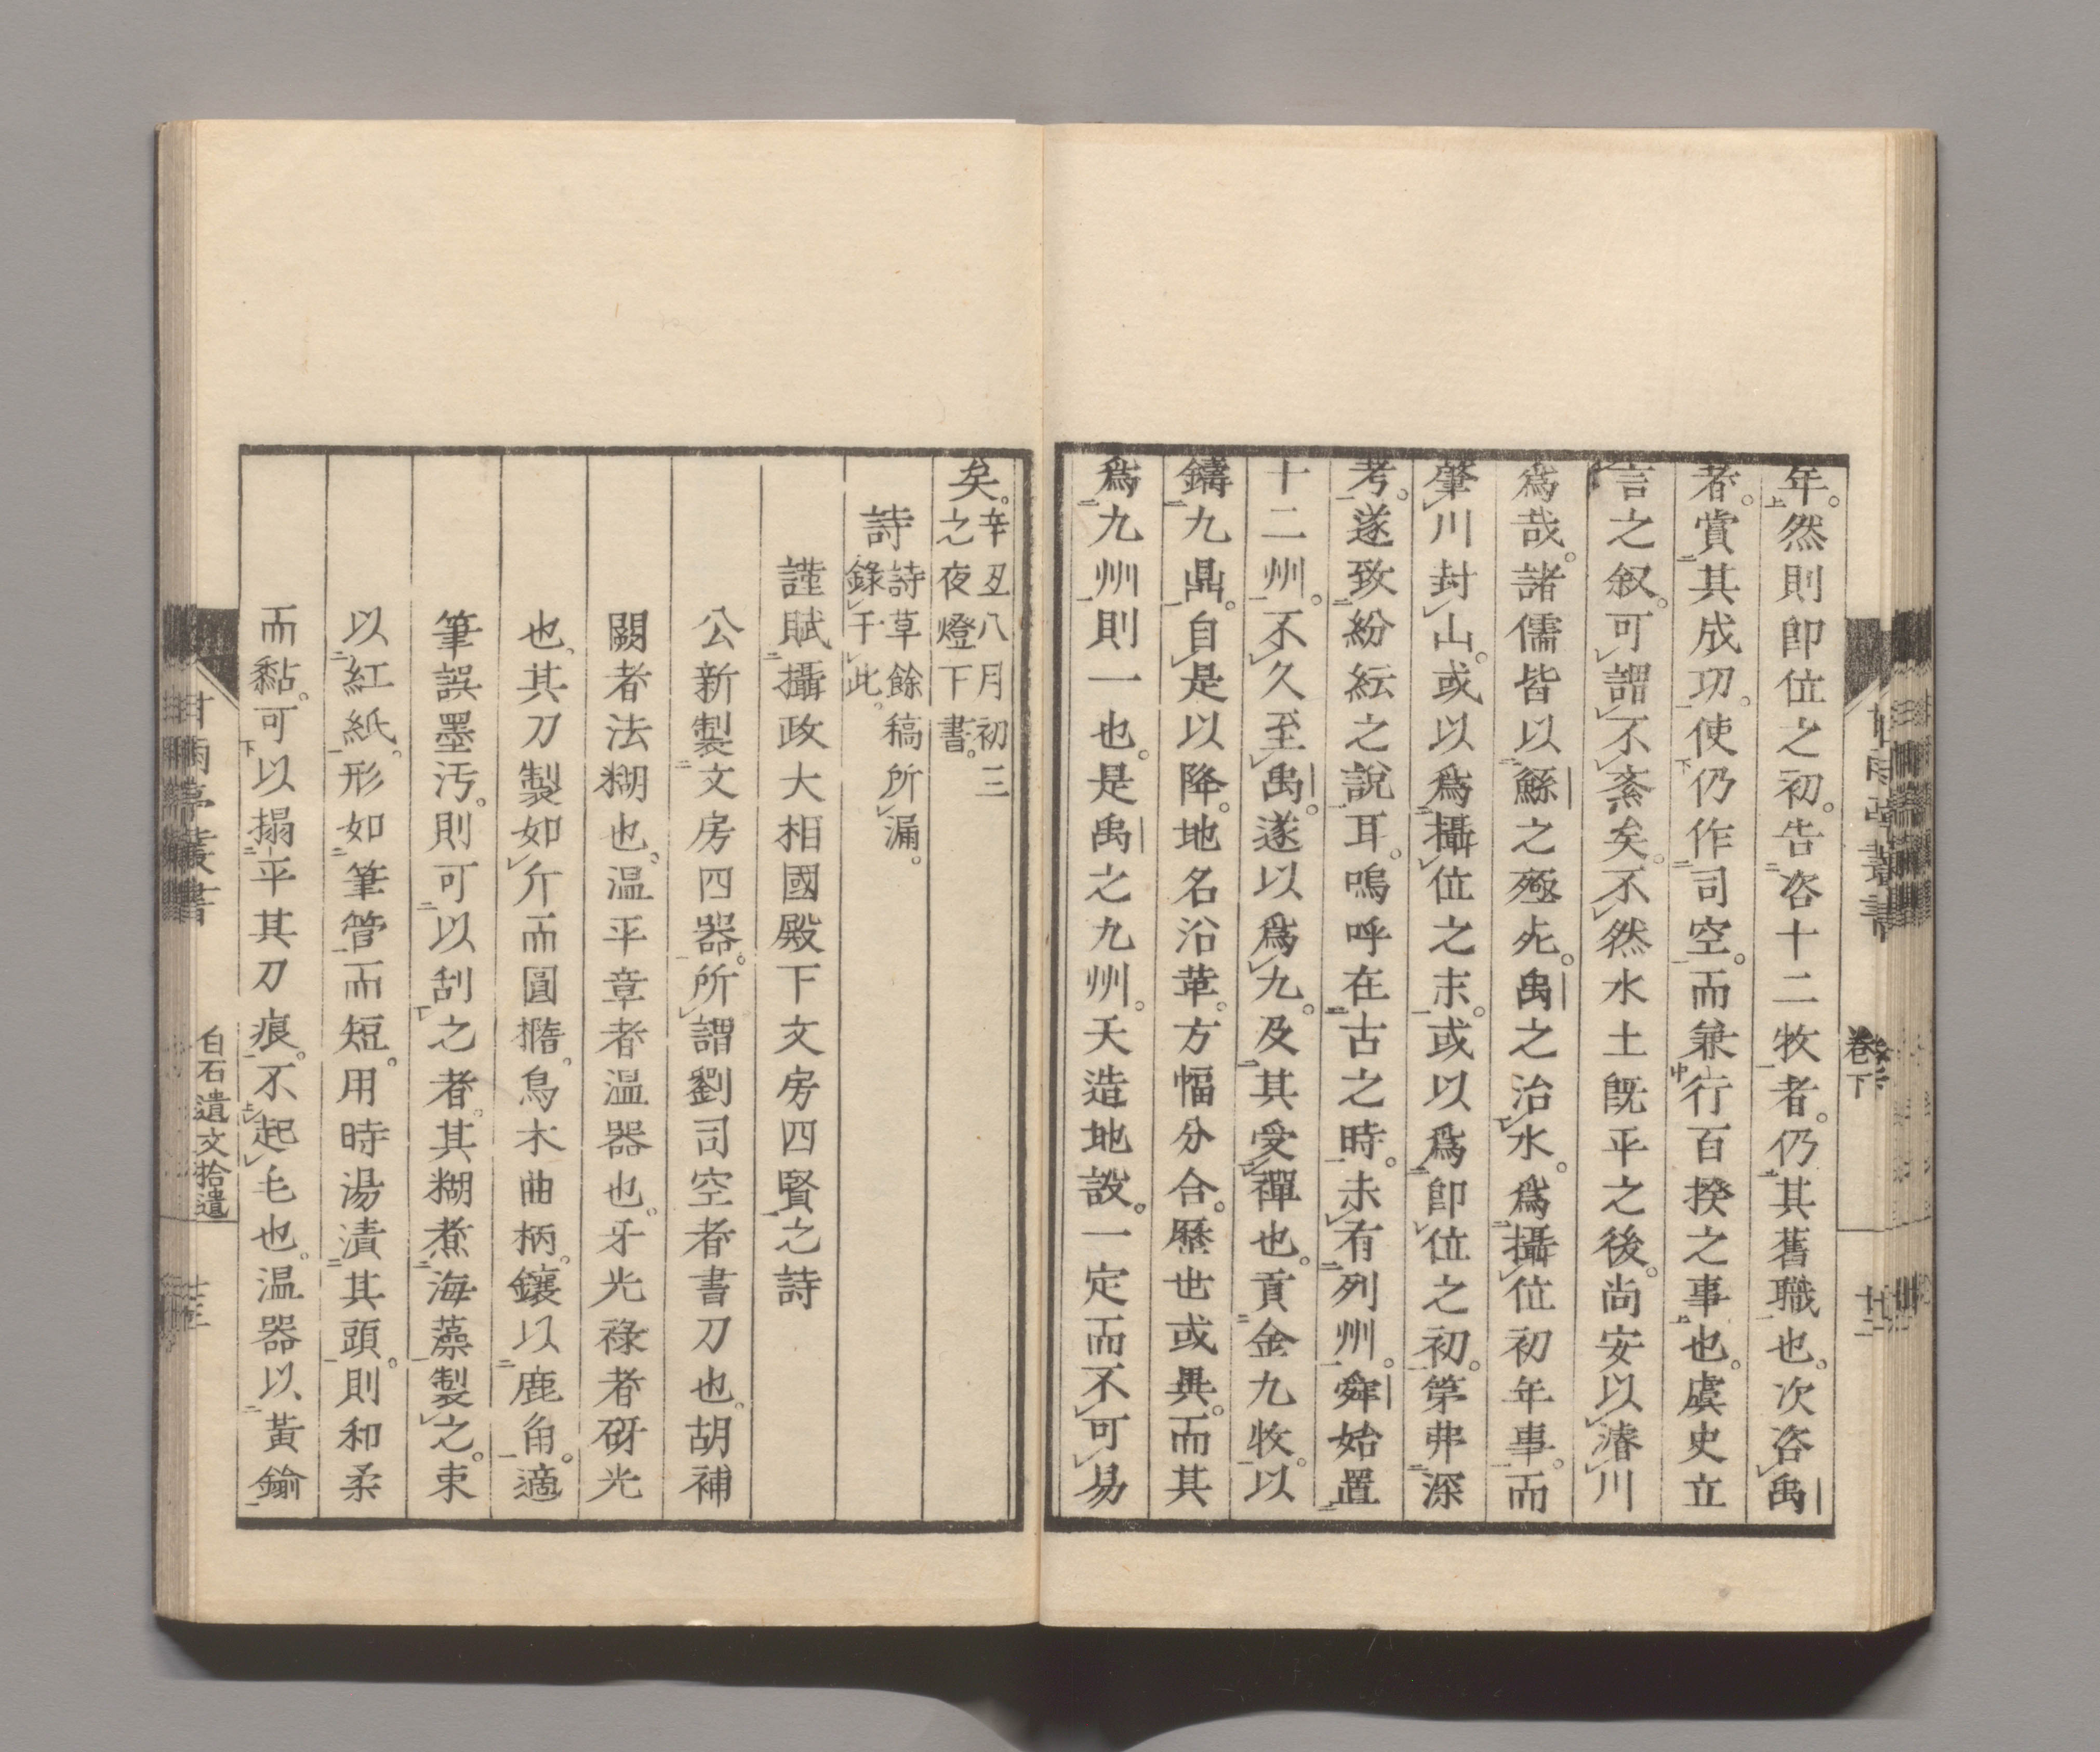 年。然則卽位之初。告咨十二牧者。仍其舊職也。次咨禹
者。賞其成功。使仍作司空。而兼行百揆之事也。虞史立
言之叙。可謂不紊矣。不然水土既平之後。尚安以濬川
爲哉。諸儒皆以鯀之殛死。禹之治水。爲攝位初年事。而
肇川封山。或以爲攝位之末。或以爲卽位之初。第弗深
考。遂致紛紜之說耳。嗚呼在古之時。未有列州。舜始置
十二州。不久至禹。遂以爲九。及其受禪也。貢金九牧。以
鑄九鼎。自是以降。地名沿革。方幅分合。歷世或異。而其
爲九州則一也。是禹之九州。天造地設。一定而不可易
矣。辛丑八月初三
之夜燈下書。
詩 詩草餘稿所漏。
錄于此。
謹賦攝政大相國殿下文房四賢之詩
公新製文房四器。所謂劉司空者書刀也。胡補
闕者法糊也。温平章者温器也。牙光祿者砑光
也。其刀製如斤而圓撱。烏木曲柄。鑲以鹿角。適
筆誤墨汚。則可以刮之者。其糊煮海藻製之。束
以紅紙。形如筆管而短。用時湯漬其頭。則和柔
而黏。可以搨平其刀痕。不起毛也。温器以黃鍮
甘雨亭叢書
卷下
十二
甘雨亭叢書
白石遺文拾遺